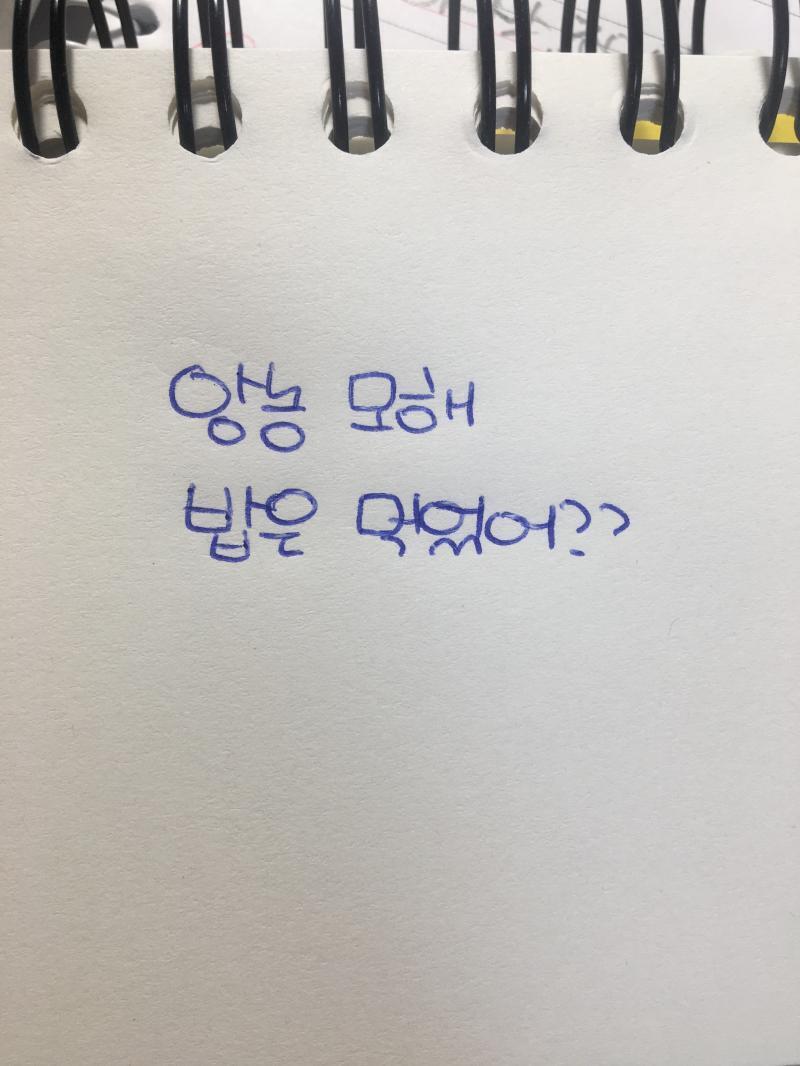 앙뇽 모해
밥은 먹었어??